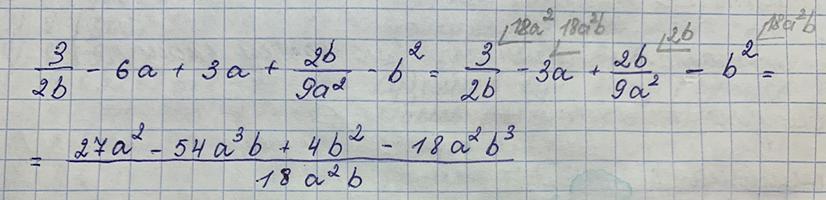 3/2b - 6a + 3a + 2b/9a² - b² = 3/2b - 3a + 2b/9a² - b² =
18a² 18a²b 2b 18a²b
= (27a² - 54a³b + 4b² - 18a²b³)/18a²b